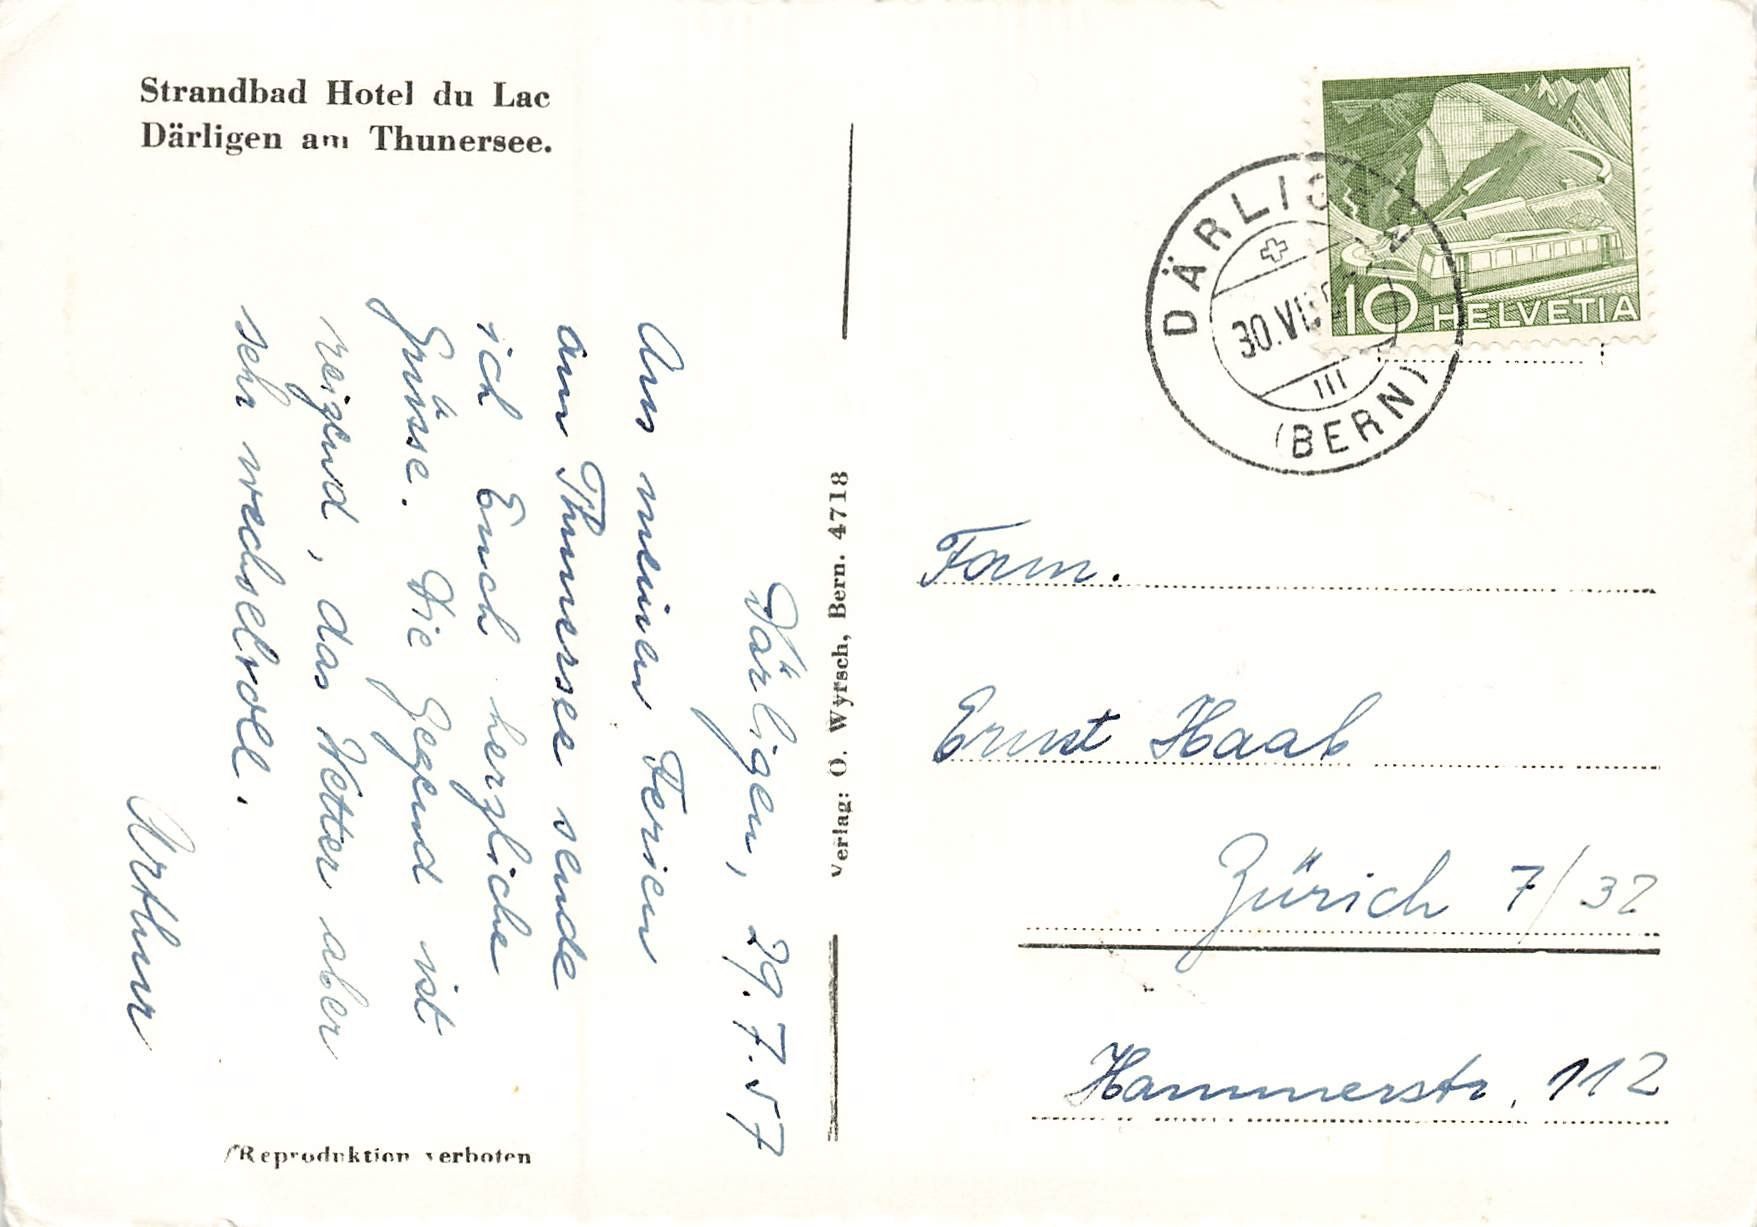 Strandbad Hotel du Lac
Därligen am Thunersee.
Därligen, 29.7.57
Aus meinen Ferien
am Thunersee sende
ich Euch herzliche
Grüsse. Die Gegend ist
reizend, das Wetter aber
sehr wechselvoll.
Arthur
Reproduktion verboten
Verlag: O. Wyrsch, Bern. 4718
10 HELVETIA
DÄRLIGEN
30.VII
(BERN)
Fam.
Ernst Haab
Zürich 7/32
Hammerstr. 112